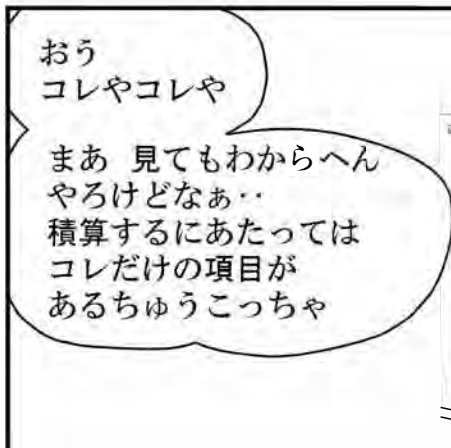 おう
コレやコレや
まあ 見てもわからへん
やろけどなぁ‥
積算するにあたっては
コレだけの項目が
あるちゅうこっちゃ